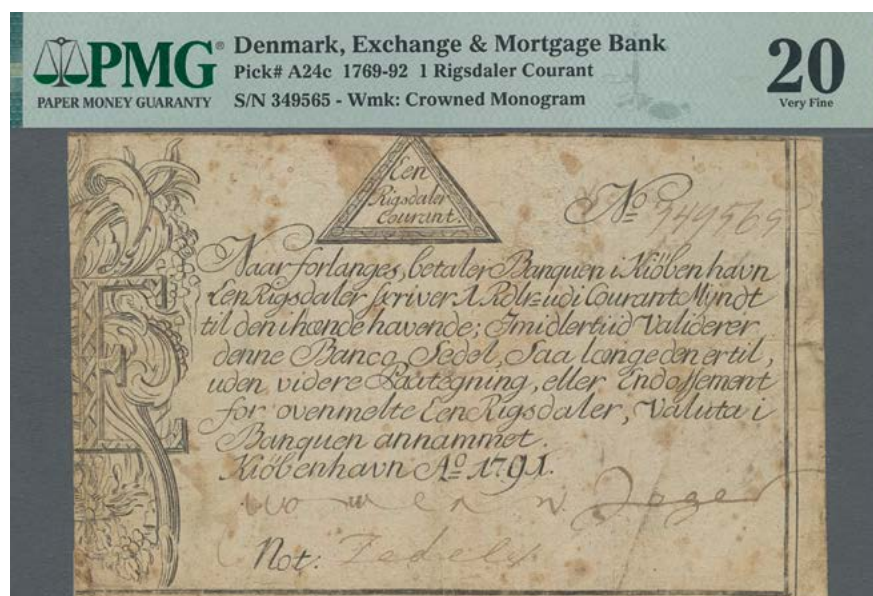 PMG®
PAPER MONEY GUARANTY
Denmark, Exchange & Mortgage Bank
Pick# A24c 1769-92 1 Rigsdaler Courant
S/N 349565 - Wmk: Crowned Monogram
20
Very Fine
Een
Rigsdaler
Courant.
No 349565
Naar forlanges, betaler Banquen i Kiöbenhavn
Een Rigsdaler skriver 1 Rdlr= udi Courant Myndt
til den ihænde havende; Imidlertiid Validerer
denne Banco Sedel, Saa længe den er til,
uden videre Paategning, eller Endossement
for ovenmelte Een Rigsdaler, Valuta i
Banquen annammet.
Kiöbenhavn Aº 1791.
Not:
E